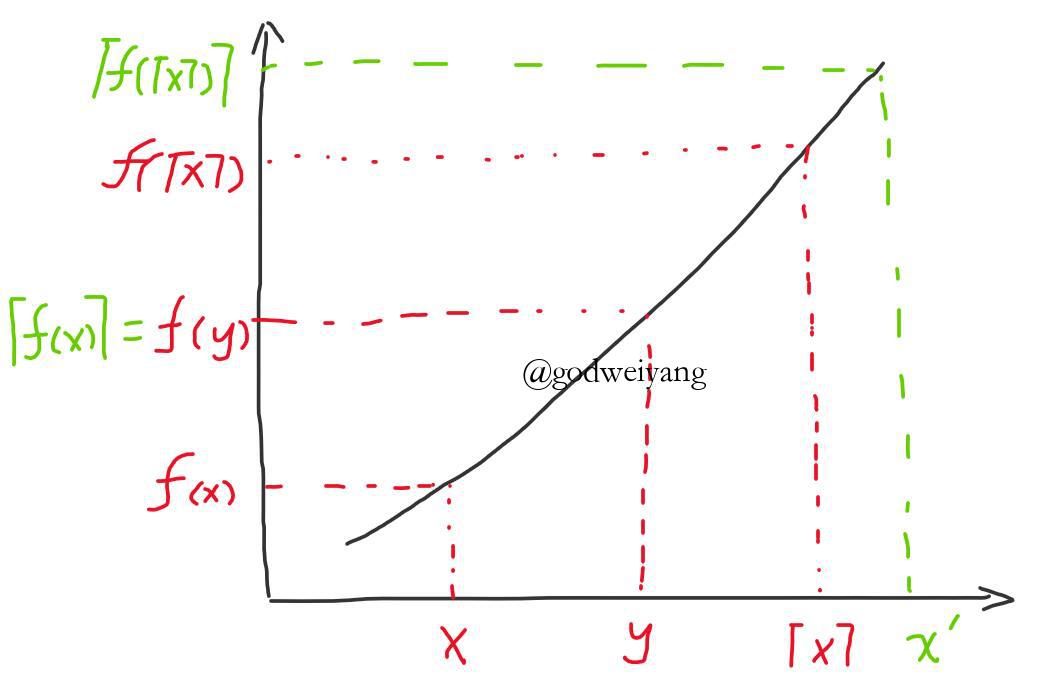 ⌈f(⌈x⌉)⌉
f(⌈x⌉)
⌈f(x)⌉ = f(y)
@godweiyang
f(x)
x y ⌈x⌉ x′